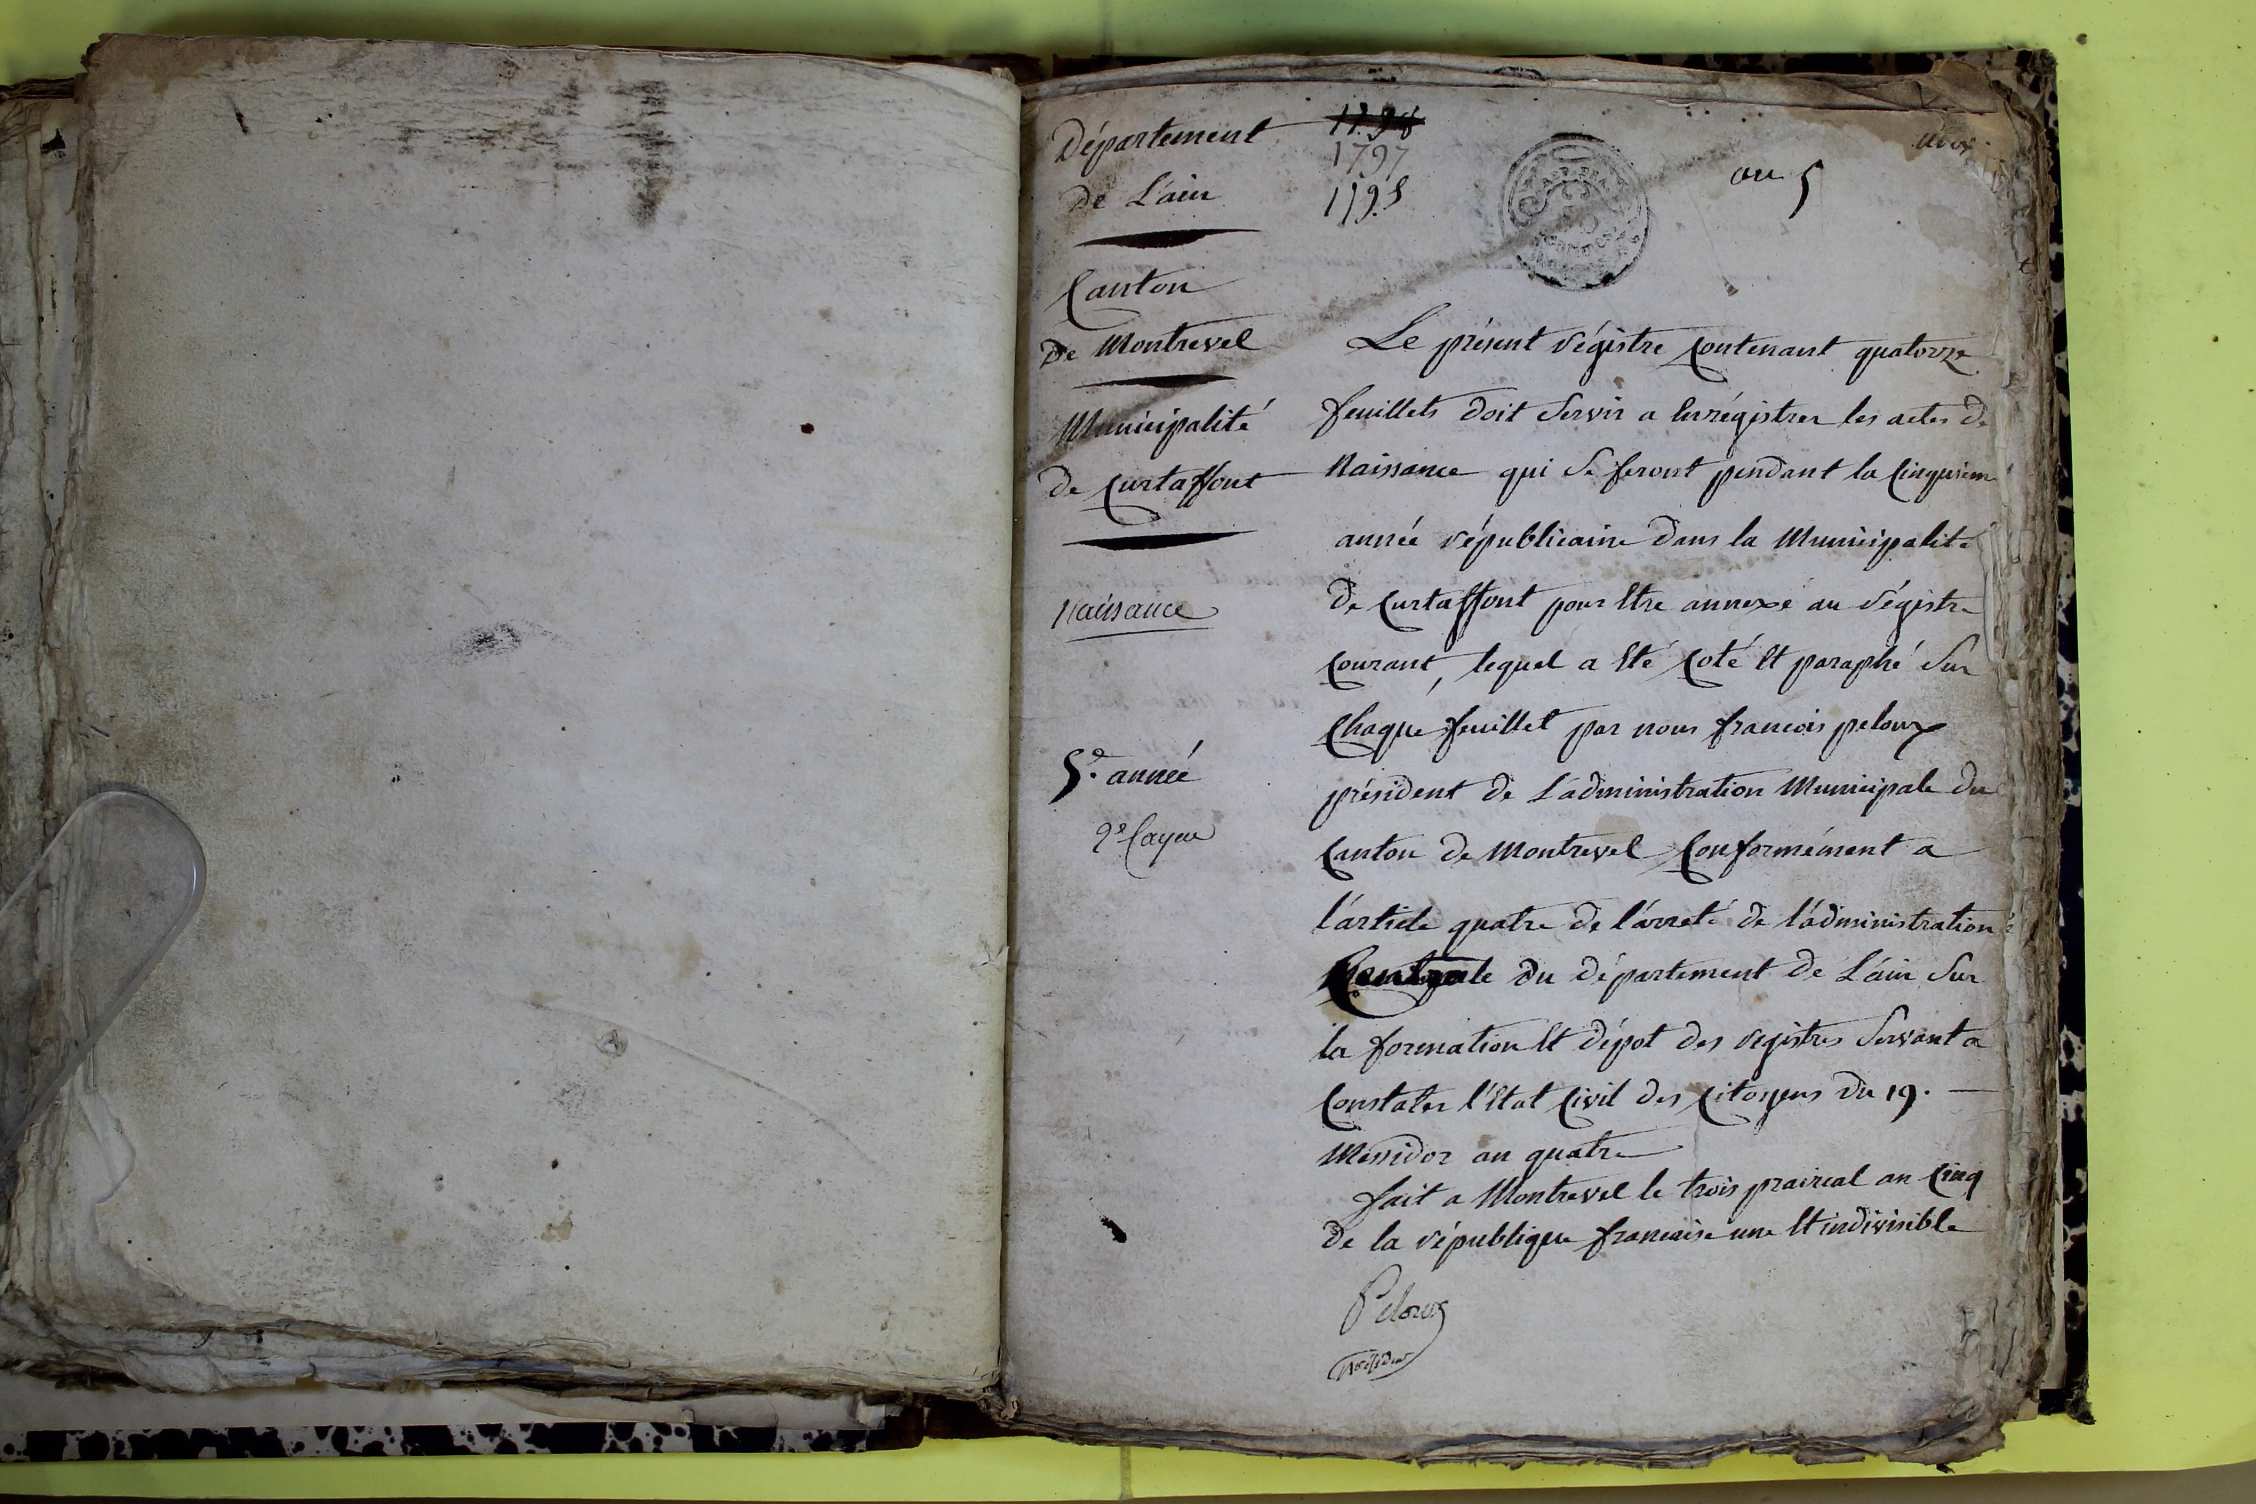 Département
de L'ain
Canton
de Montrevel
Municipalité
de Curtaffont
Naissance
5e. année
2e Cayer
1797
1798
an 5
Le présent régistre Contenant quatorze
feuillets doit Servir a Enrégistrer les actes de
Naissance qui Se feront pendant la Cinquiem
année républicaine dans la Municipalité
de Curtaffont pour Etre annexé au régistre
Courant, lequel a Eté Coté Et paraphé Sur
Chaque feuillet par nous francois peloux
président de L'administration Municipale du
Canton de Montrevel Conformément a
l'article quatre de l'arreté de l'administration
Centrale du département de L'ain Sur
la formation Et dépot des registres Servant a
Constater l'Etat Civil des Citoyens du 19.
Messidor an quatre
fait a Montrevel le trois prairial an Cinq
de la république francaise une Et indivisible
Peloux